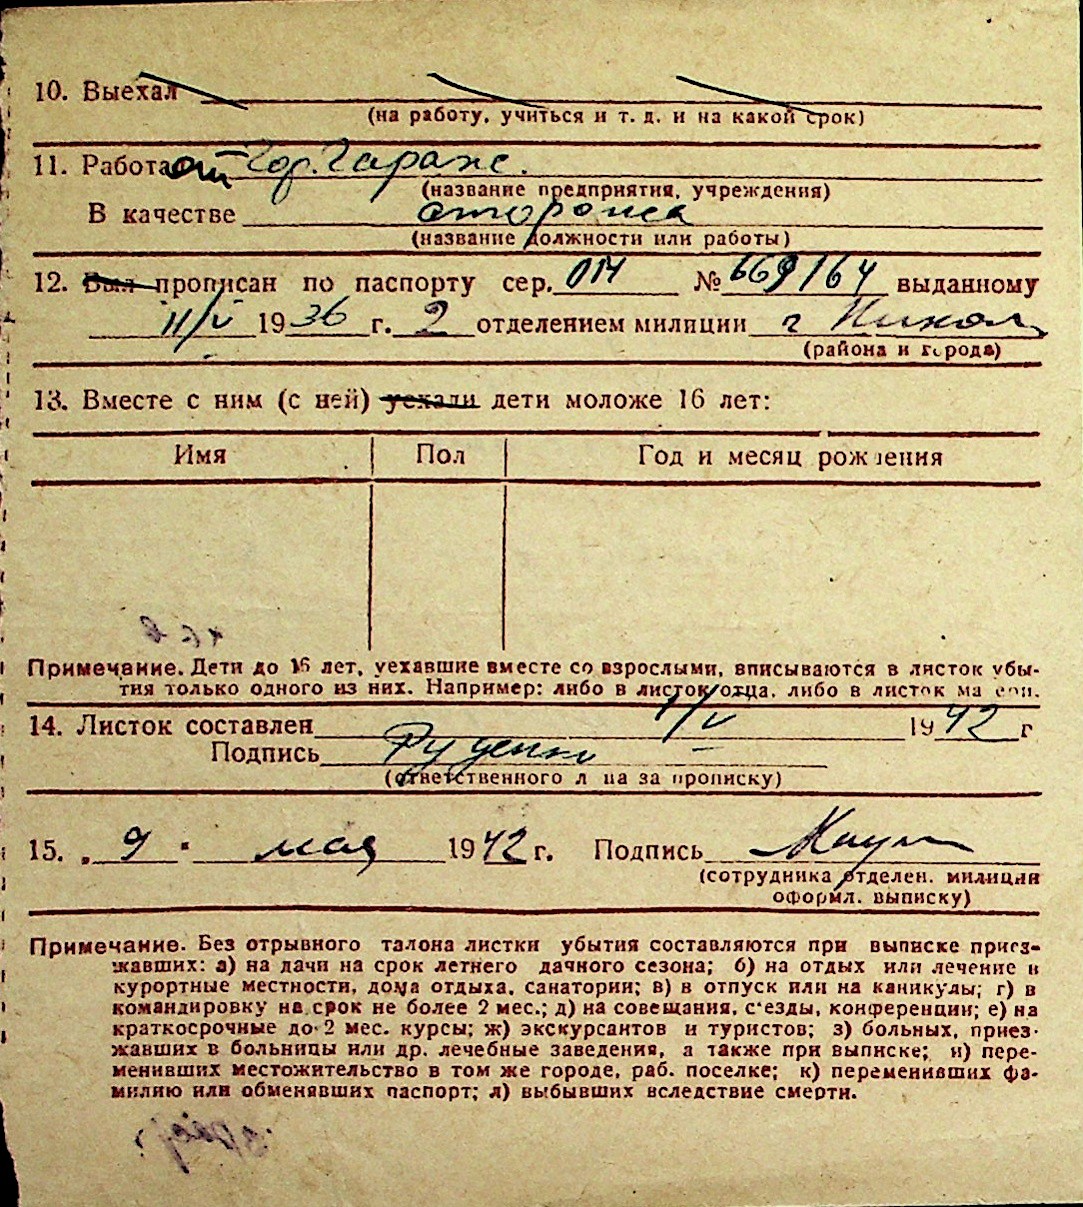 10. Выехал
(на работу, учиться и т. д. и на какой срок)
11. Работа Гор. Гараж.
(название предприятия, учреждения)
В качестве сторожа
(название должности или работы)
12. Был прописан по паспорту сер. № 669164 выданному
11/V 1936 г. 2 отделением милиции г
(района и города)
13. Вместе с ним (с ней) уехали дети моложе 16 лет:
Имя Пол Год и месяц рождения
Примечание. Дети до 16 лет, уехавшие вместе со взрослыми, вписываются в листок убы-
тия только одного из них. Например: либо в листок отца, либо в листок матери.
14. Листок составлен 1942 г
Подпись Руденко
(ответственного лица за прописку)
15. „ 9 " мая 1942 г. Подпись
(сотрудника отделен. милиции
оформл. выписку)
Примечание. Без отрывного талона листки убытия составляются при выписке приез-
жавших: а) на дачи на срок летнего дачного сезона; б) на отдых или лечение в
курортные местности, дома отдыха, санатории; в) в отпуск или на каникулы; г) в
командировку на срок не более 2 мес.; д) на совещания, с'езды, конференции; е) на
краткосрочные до 2 мес. курсы; ж) экскурсантов и туристов; з) больных, приез-
жавших в больницы или др. лечебные заведения, а также при выписке; и) пере-
менивших местожительство в том же городе, раб. поселке; к) переменивших фа-
милию или обменявших паспорт; л) выбывших вследствие смерти.